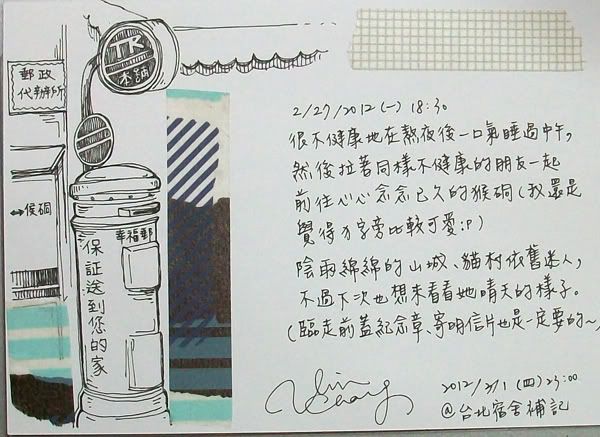 TR
本舖
郵政
代辦所
↔侯硐
幸福郵
保証送到您的家
2/27/2012(一) 18:30
很不健康地在熬夜後一口氣睡過中午,
然後拉著同樣不健康的朋友一起
前往心心念念已久的猴硐(我還是
覺得犭字旁比較可愛:P)
陰雨綿綿的山城、貓村依舊迷人,
不過下次也想來看看她晴天的樣子。
(臨走前蓋紀念章、寄明信片也是一定要的~)
2012/3/1 (四) 23:00
@台北宿舍補記